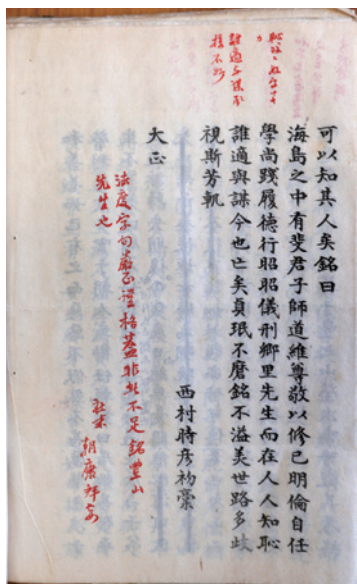 誰適与謀
可以知其人矣銘曰
海島之中有斐君子師道維尊敬以修己明倫自任
學尚踐履德行昭昭儀刑鄉里先生而在人人知恥
誰適與謀今也亡矣貞珉不磨銘不溢美世路多歧
視斯芳軌
西村時彥初稾
大正
法度字句嚴正謹格蓋非此不足銘豊山
先生也
社末
朝康拜妄